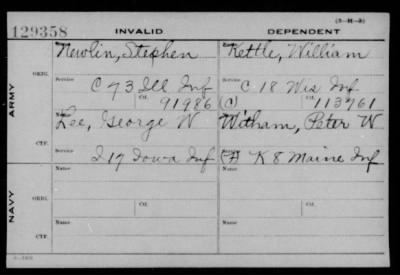 (3-M-8)
129358 INVALID DEPENDENT
Name Newlin, Stephen Name Kettle, William
ORIG. Service C 73 Ill Inf Service C 18 Wis Inf
Ctf. 91986 (C) Ctf. 113761
ARMY
Name Lee, George W Name Witham, Peter W
CTF. Service I 17 Iowa Inf (F) K 8 Maine Inf
NAVY
ORIG. Name Ctf. Name Ctf.
CTF. Name Name